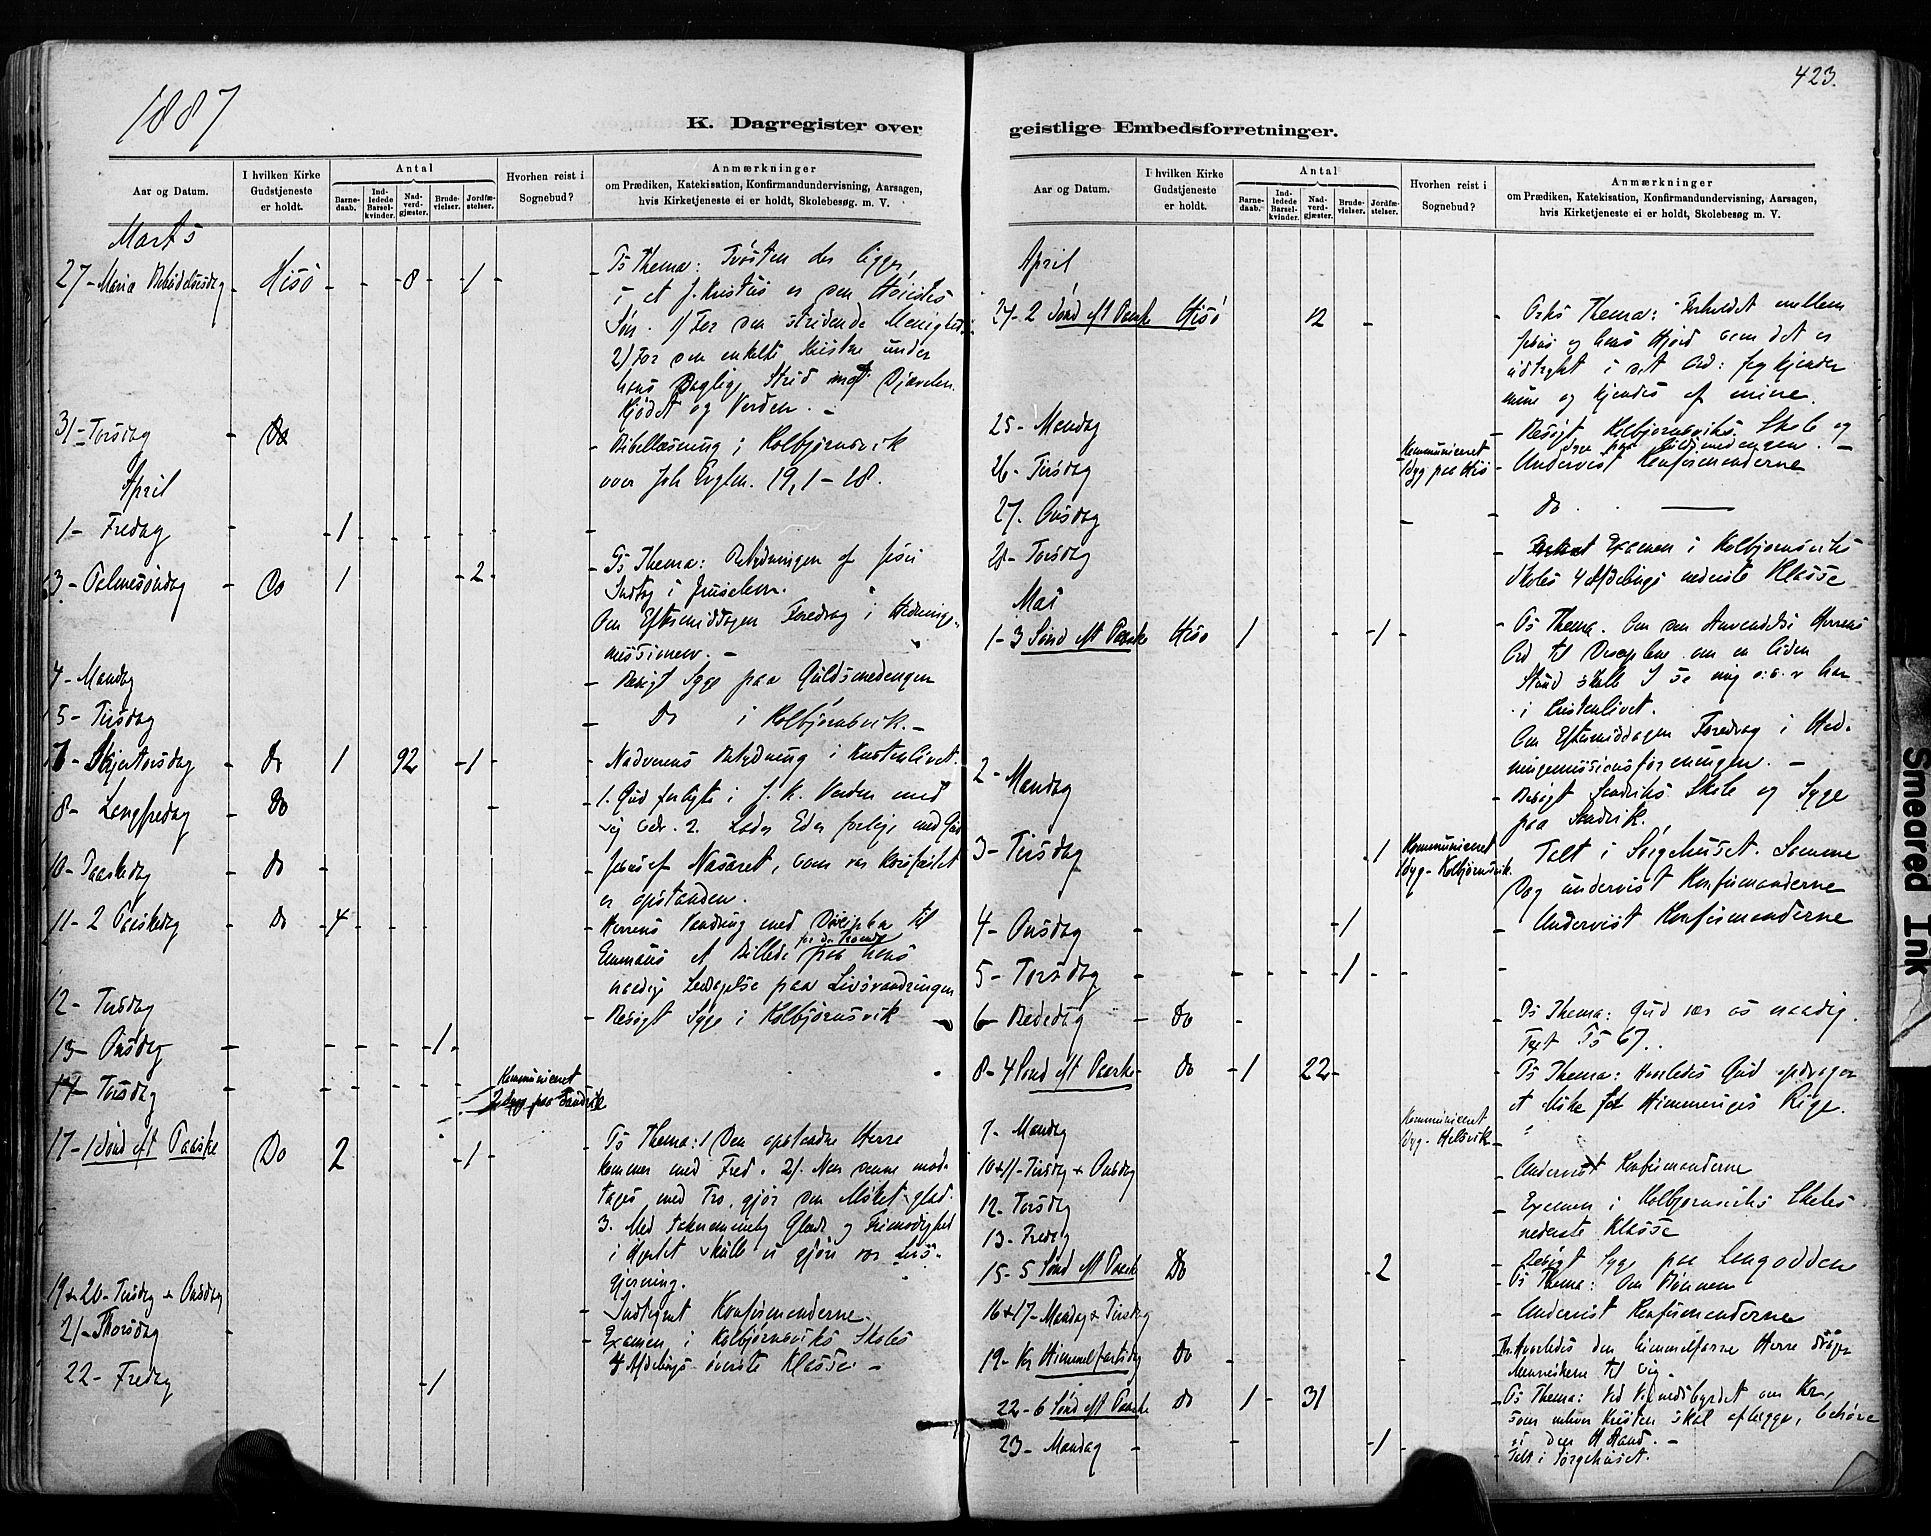 1887
K. Dagregister over
Aar og Datum.
I hvilken Kirke Gudstjeneste er holdt.
Antal
Barnedaab.
Indledede Barselkvinder.
Nadverdgjæster.
Brudevielser.
Jordfæstelser.
Hvorhen reist i Sognebud?
Anmærkninger
om Prædiken, Katekisation, Konfirmandundervisning, Aarsagen,
hvis Kirketjeneste ei er holdt, Skolebesøg m. V.
Marts
27 - Maria Bebudelsesdag - Hisö - - - 8 - 1 - Ts Thema: Trösten der ligger
i at J. Kristus er den Höiestes
Søn. 1) For den stridende Menighed
2) For den enkelte Kristne under
hans Daglige Strid mod Djævelen
Kjödet og Verden. -
31 - Torsdag - Do - Bibellæsning i Kolbjørnsvik
over Joh Evglm. 19, 1 - 18.
April
1 - Fredag - 1 - - - - -
3 - Palmesøndag - Do - 1 - 2 - Ts Thema: Betydningen af Jesu
Indtog i Jerusalem.
Om Eftermiddagen Foredrag i Hedninge-
missionen. -
4 - Mandag - Besøgt Syge paa Guldsmedengen
5 - Tirsdag - Do i Kolbjørnsvik. -
7 - Skjærtorsdag - Do 1 92 - 1 - Nadverens Betydning i Kristenlivet.
8 - Langfredag - Do - 1. Gud forligte i J. K. Verden med
sig selv. 2. Lader Eder forlige med Gud
10 - Paaskedag - Do - Jesus af Nasaret, som var korsfæstet
er opstanden.
11 - 2 Paaskedag - Do - 4 - Herrens Vandring med Disciplene til
Emmaus et Billede paa hans
naadige Ledsagelse paa Livsvandringen
12 - Tirsdag - Besøgt Syge i Kolbjørnsvik
13 - Onsdag - - - - - 1 -
14 - Torsdag - - - - - Kommuniceret
2 Syge paa Sandvik
17 - 1 Sønd eft Paaske Do 2 - 1 - Ts Thema: 1 Den opstandne Herre
kommer med Fred. 2). Naar denne mod-
tages med Tro, gjør den Mödet glad.
3. Med taknemmelig Glæde og Frimodighed
i Hjertet skulle vi gjöre vor Livs-
gjerning.
19 + 20 - Tirsdag + Onsdag - Indtegnet Konfirmanderne.
21 - Thorsdag - Examen i Kolbjørnsviks Skoles
4 Afdelings øverste Klasse -
22 - Fredag - 1
423.
geistlige Embedsforretninger.
Aar og Datum.
I hvilken Kirke Gudstjeneste er holdt.
Antal
Barnedaab.
Indledede Barselkvinder.
Nadverdgjæster.
Brudevielser.
Jordfæstelser.
Hvorhen reist i Sognebud?
Anmærkninger
om Prædiken, Katekisation, Konfirmandundervisning, Aarsagen,
hvis Kirketjeneste ei er holdt, Skolebesøg m. V.
April
24 - 2 Sønd eft Paaske Hisö 12 - - Thema: Forholdet mellem
Jesus og hans Hjord som det er
udtrykt i det Ord: Jeg kjender
mine og kjendes af mine.
25 - Mandag - Besøgt Kolbjørnsviks Skole og
Syge paa Guldsmedengen. -
26 - Tirsdag Kommuniceret
Syg paa Hisö - Undervist Konfirmanderne
27. Onsdag - - Do. -
28 - Torsdag - Examen i Kolbjørnsviks
Skoles 4 Afdelings nederste Klasse
Mai
1 - 3 Sønd eft Paaske Hisö 1 - 1 - Ts Thema. Om den Anvendelse Herrens
Ord til Disciplene om en liden
Stund skulle I se mig o.s.v har
i Kristenlivet.
Om Eftermiddagen Foredrag i Hed-
ningemissionsforeningen. -
2 - Mandag - Besøgt Sandviks Skole og Syge
paa Sandvik.
3 - Tirsdag 1 Kommuniceret
Syg - Kolbjørnsvik Talt i Sørgehuset. Samme
Dag undervist Konfirmanderne
4 - Onsdag - 1 - Undervist Konfirmanderne
5 - Torsdag - - - - 1 - -
6 - Bededag - Do - Ts Thema: Gud vær os naadig.
Text Ps 67.
8 - 4 Sønd eft Paaske - Do - 1 22 - Ts Thema: Hvorledes Gud opdrager
et Folk for Himmeriges Rige.
7 - Mandag Kommuniceret
Syg - Helsvik - "
10 + 11 - Tirsdag + Onsdag - Undervist Konfirmanderne
12 - Torsdag Examen i Kolbjørnsviks Skoles
nederste Klasse
13 - Fredag - Besøgt Syge paa Langodden
15 - 5 Sønd eft Paaske Do - 2 - Ts Thema: Om Bönnen
16 + 17 - Mandag + Tirsdag - Undervist Konfirmanderne
19 - Kr Himmelfartsdag Do - - Hvorledes den himmelfarne Herre drager
Menneskene til sig.
22 - 6 Sønd eft Paaske Do 1 - 31 - Ts Thema: Ved Vidnedsbyrdet om Kr,
som enhver Kristen skal aflægge, behøve
vi den H Aand. -
23 - Mandag - - - 1 - Talt i Sørgehuset.
Smeared Ink